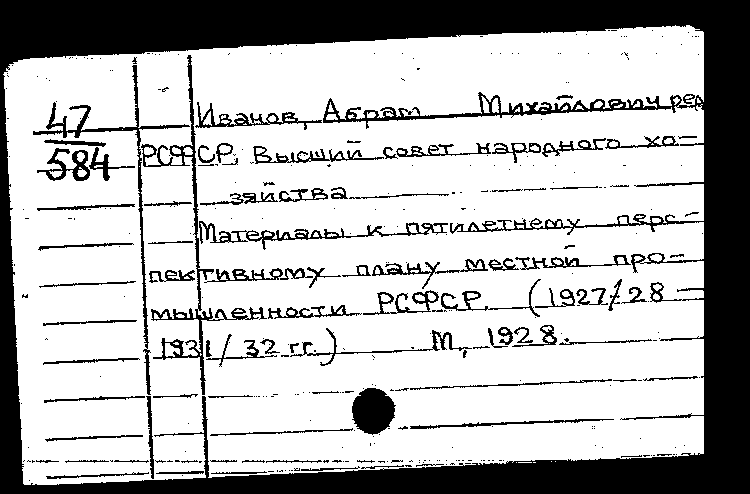 47
584
Иванов, Абрам Михайлович ред
РСФСР. Высший совет народного хо-
зяйства
Материалы к пятилетнему перс-
пективному плану местной про-
мышленности РСФСР. (1927/28 —
1931/32 гг.) М, 1928.